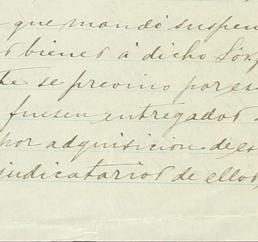 que mandó suspen
bienes á dicho Lóp
te se previno por es
fuesen entregados
por adquisicion de es
judicatarios de ellos,